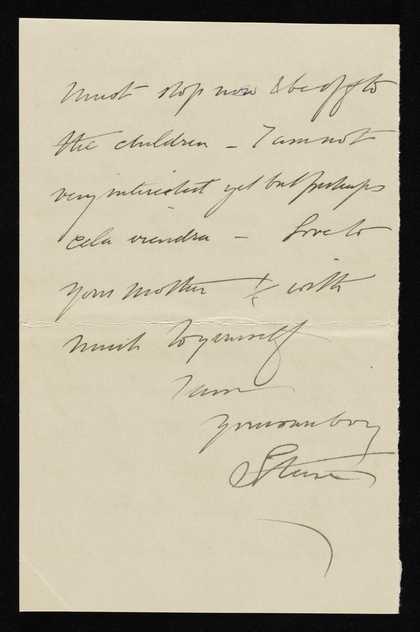 must stop now & be off to
the children – I am not
very interested yet but perhaps
cela viendra – Love to
your mother & with
much to yourself
I am
your own boy